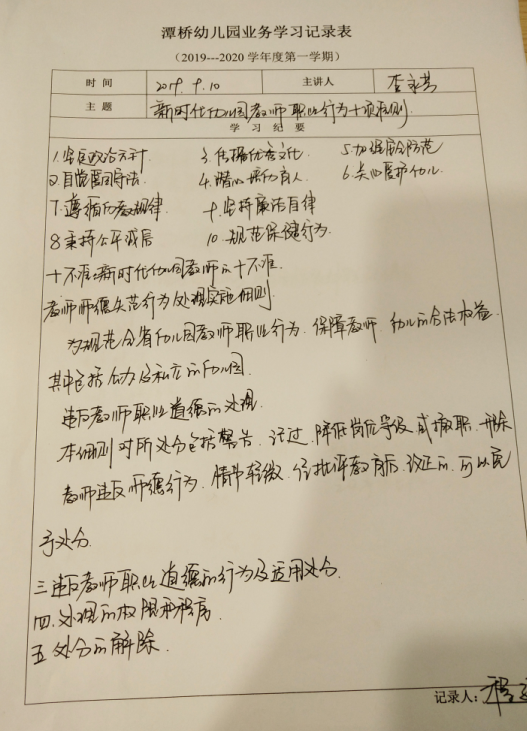 潭桥幼儿园业务学习记录表
（2019---2020学年度第一学期）
时 间 2019.9.10 主讲人 李
主 题 新时代幼儿园教师职业行为十项准则
学 习 纪 要
1.坚定政治方针 3.传播优秀文化 5.加强安全防范
2.自觉爱国守法 4.潜心培幼育人 6.关心爱护幼儿
7.遵循幼教规律 9.坚持廉洁自律
8秉持公平诚信 10.规范保健行为
十不准:新时代幼儿园教师的十不准.
教师师德失范行为处理实施细则
为规范全省幼儿园教师职业行为.保障教师.幼儿的合法权益.
其中包括公办及私立的幼儿园
违反教师职业道德的处理.
本细则对所处分包括警告.记过.降低岗位等级或撤职.开除
教师违反师德行为.情节轻微.经批评教育后.改正的.可以免
予处分.
三违反教师职业道德的行为及适用处分.
四.处理的权限和程序
五处分的解除.
记录人: 程